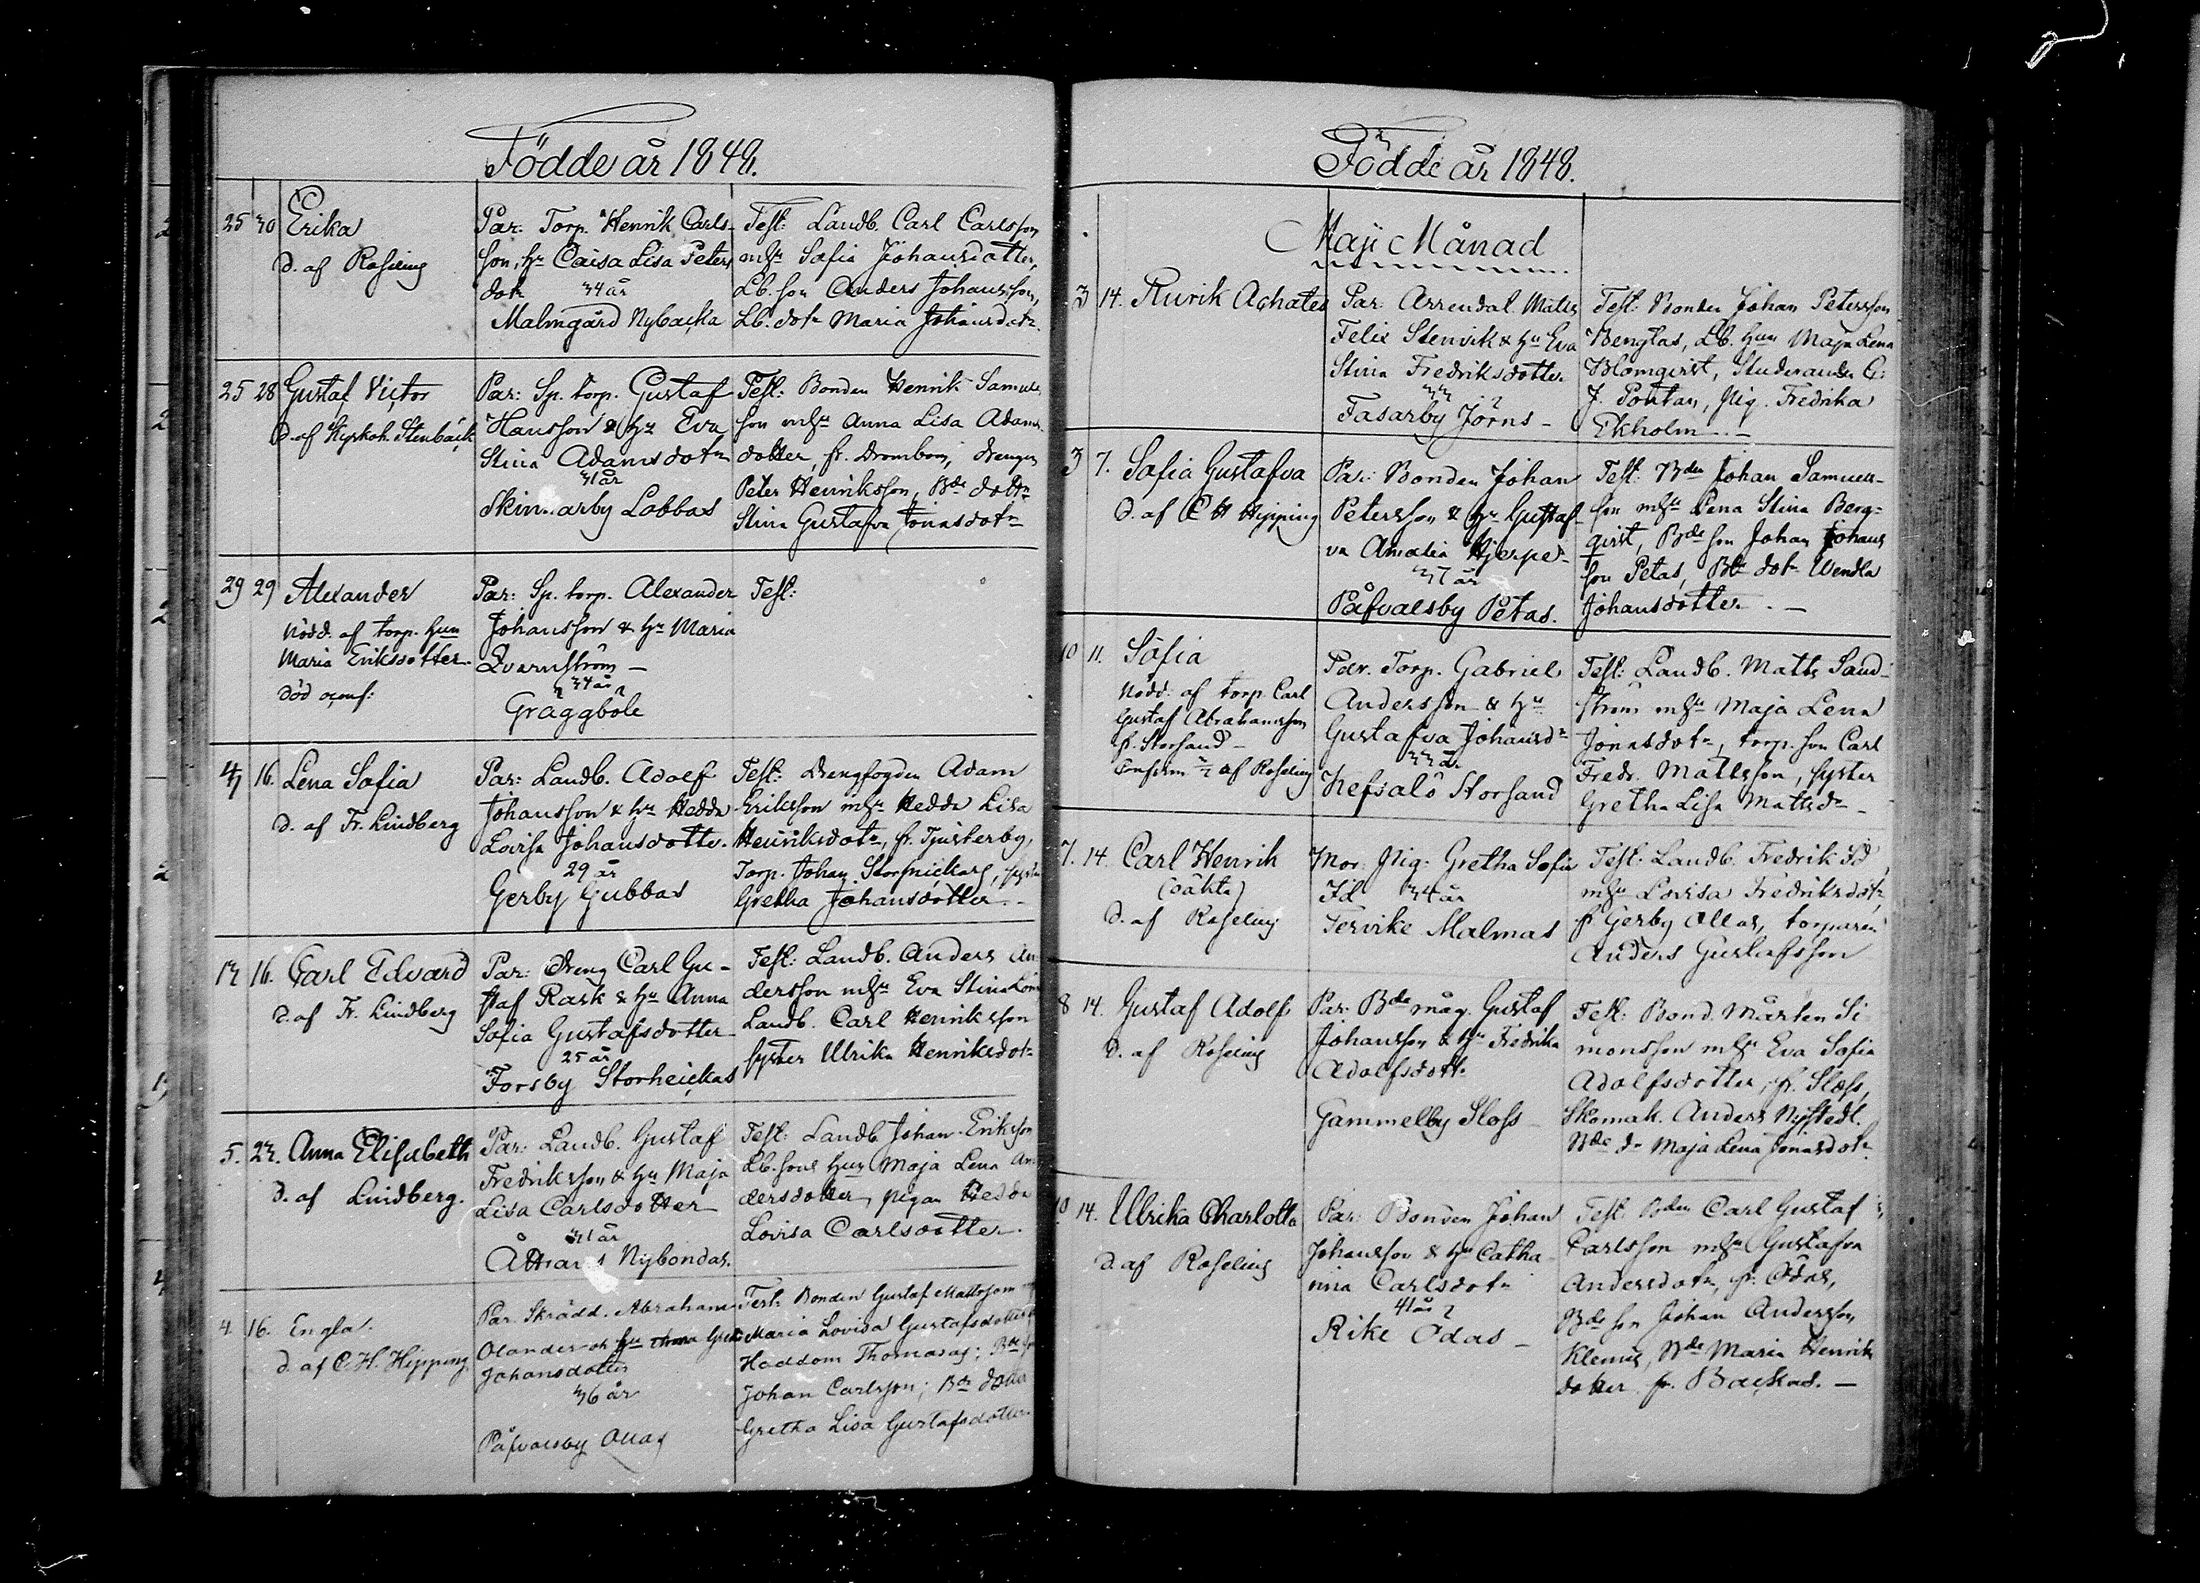 Födde år 1848.
25 30 Erika
d. af Roseling
Par: Torp. Henrik Carls-
son, hu Caisa Lisa Peters
dotr 34 år
Malmgård Nybacka
Test: Landb. Carl Carlsson
mhu Sofia Johansdotter,
Lb. son Anders Johansson,
Lb. dotr Maria Johansdotr.
25 28 Gustaf Victor
d. af Kyrkoh. Stenbäck
Par: Sp. torp. Gustaf
Hansson & hu Eva
Stina Adamsdotr
31 år
Skinnarby Lobbas
Test: Bonden Henrik Samuels
son mhu Anna Lisa Adams-
dotter, fr. Drombom, drengen
Peter Henriksson, Bde dotr
Stina Gustafva Jonasdotr
29 29 Alexander
Nödd. af torp. hun
Maria Eriksdotter
död
Par: Sp. torp. Alexander
Johansson & hu Maria
Qvarnström —
34 år
Graggböle
Test:
4 16. Lena Sofia
d. af Fr. Lindberg
Par: Landb. Adolf
Johansson & hu Hedda
Lovisa Johansdotter.
29 år
Gerby Gubbas
Test: Drengfogden Adam
Eriksson mhu Hedda Lisa
Henriksdotr, fr. Tjusterby,
Torp. Johan Storsnickars, syster
Gretha Johansdotter.
13 16. Carl Edvard
d. af Fr. Lindberg
Par: Dreng Carl Gu-
staf Rask & hu Anna
Sofia Gustafsdotter
25 år
Forsby Storheickas
Test: Landb. Anders An-
dersson mhu Eva Stina
Landb. Carl Henriksson
syster Ulrika Henriksdotr
5. 23. Anna Elisabeth
d. af Lindberg.
Par: Landb. Gustaf
Fredriksson & hu Maja
Lisa Carlsdotter
31 år
Nybondas.
Test: Landb. Johan Eriksson
Lb. sons hun Maja Lena An-
dersdotter, pigan Hedda
Lovisa Carlsdotter.
4. 16. Engla.
d. af C. H. Hipping
Par. Skrädd. Abraham
Olander och hu Anna Greta
Johansdotter
36 år
Påfvalsby Allas
Test: Bonden Gustaf Mattsson
Maria Lovisa Gustafsdotter
Haddom Thomasas; Bde son
Johan Carlsson; Bde dotter
Gretha Lisa Gustafsdotter.
Födde år 1848.
Maji Månad
3 14. Rurik Achates
Par: Arrendat. Matts
Felix Stenvik & hu Eva
Stina Fredriksdotter
33
Fasarby Jörns —
Test: Bonden Johan Petersson
Bengtas, Lb. hun Maja Lena
Blomqvist, Studeranden C.
J. Pontan, Pig. Fredrika
Ekholm. —
3 7. Sofia Gustafva
d. af C H Hipping
Par: Bonden Johan
Petersson & hu Gustaf-
va Amalia Hjerpe-
37 år
Påfvalsby Petas.
Test: Bden Johan Samuels-
son mhu Lena Stina Berg-
qvist, Bde son Johan Johans
son Petas, Bde dotr Wendla
Johansdotter. —
10 11. Sofia
Nödd. af torp. Carl
Gustaf Abrahamsson
fr. Storsand —
af Roseling
Par. Torp. Gabriel
Andersson & hu
Gustafva Johansdr
33 år
Kefsalö Storsand
Test: Landb. Matts Sand-
ström mhu Maja Lena
Jonasdotr, torp. son Carl
Fredr. Mattsson, syster
Gretha Lisa Mattsdr —
7. 14. Carl Henrik
(oäkta)
d. af Roseling
Mor: Pig: Gretha Sofia
Id 34 år
Tervike Malmas
Test: Landb. Fredrik Id
mhu Lovisa Fredriksdotr,
fr Gerby Allas, torparen
Anders Gustafsson
8 14. Gustaf Adolf
d. af Roseling
Par: Bde måg. Gustaf
Johansson & hu Fredrika
Adolfsdotr
Gammelby Sloss
Test: Bond. Mårten Si
monsson mhu Eva Sofia
Adolfsdotter, fr. Sloss,
Skomak. Anders Nystedt.
Bde dr Maja Lena Jonasdotr.
10 14. Ulrika Charlotta
d. af Roseling
Par: Bonden Johan
Johansson & hu Catha-
rina Carlsdotr
41 år
Rike Ödas —
Test: Bden Carl Gustaf
Carlsson mhu Gustafva
Andersdotr, fr. Ödas,
Bde son Johan Andersson
Klemis, Bde Maria Henrik
dotter fr. Backas. —